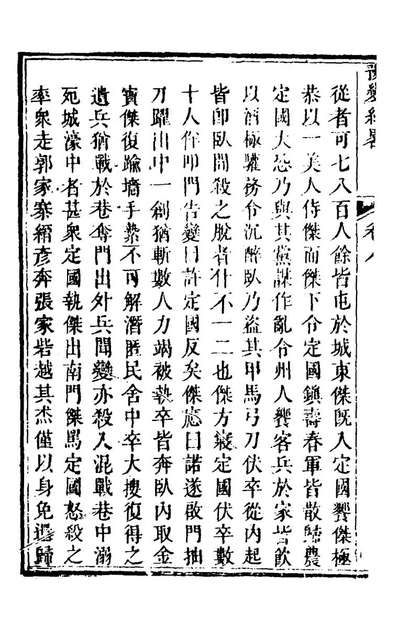 豫變紀畧 卷八
從者可七八百人餘皆屯於城東傑既入定國饗傑極
恭以一美人侍傑而傑下令定國鎮壽春軍皆散歸農
定國大恐乃與其黨謀作亂令州人饗客兵於家皆飲
以酒極驩務令沉醉臥乃盜其甲馬弓刀伏卒從內起
皆卽臥間殺之脫者什不一二也傑方寢定國伏卒數
十人作叩門告變曰許定國反矣傑應曰諾遂啟門抽
刀躍出中一創猶斬數人力竭被執卒皆奔臥內取金
寶傑復踰墻手縶不可解潛匿民舍中卒大搜復得之
遺兵猶戰於巷奪門出外兵聞變亦殺入混戰巷中溺
死城濠中者甚衆定國執傑出南門傑罵定國怒殺之
率衆走郭家寨縉彥奔張家砦越其杰僅以身免遁歸